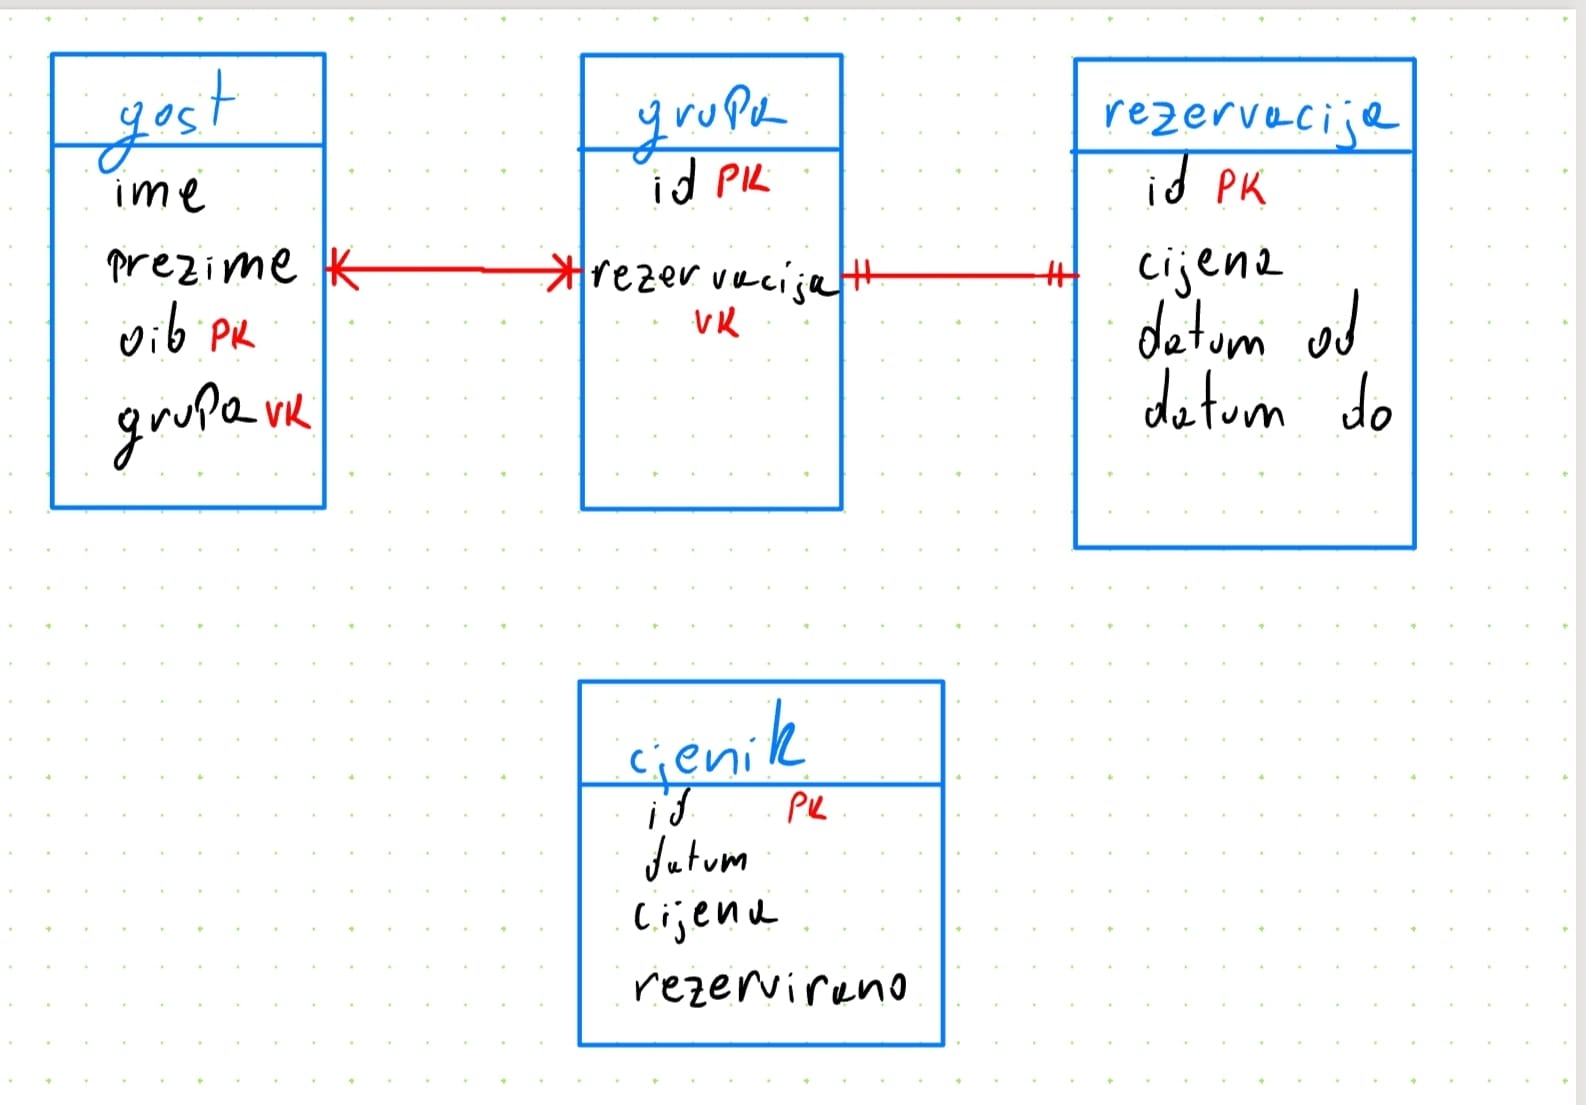 gost
ime
prezime
oib PK
grupa VK
grupa
id PK
rezervacija
VK
rezervacija
id PK
cijena
datum od
datum do
cjenik
id PK
datum
cijena
rezervirano